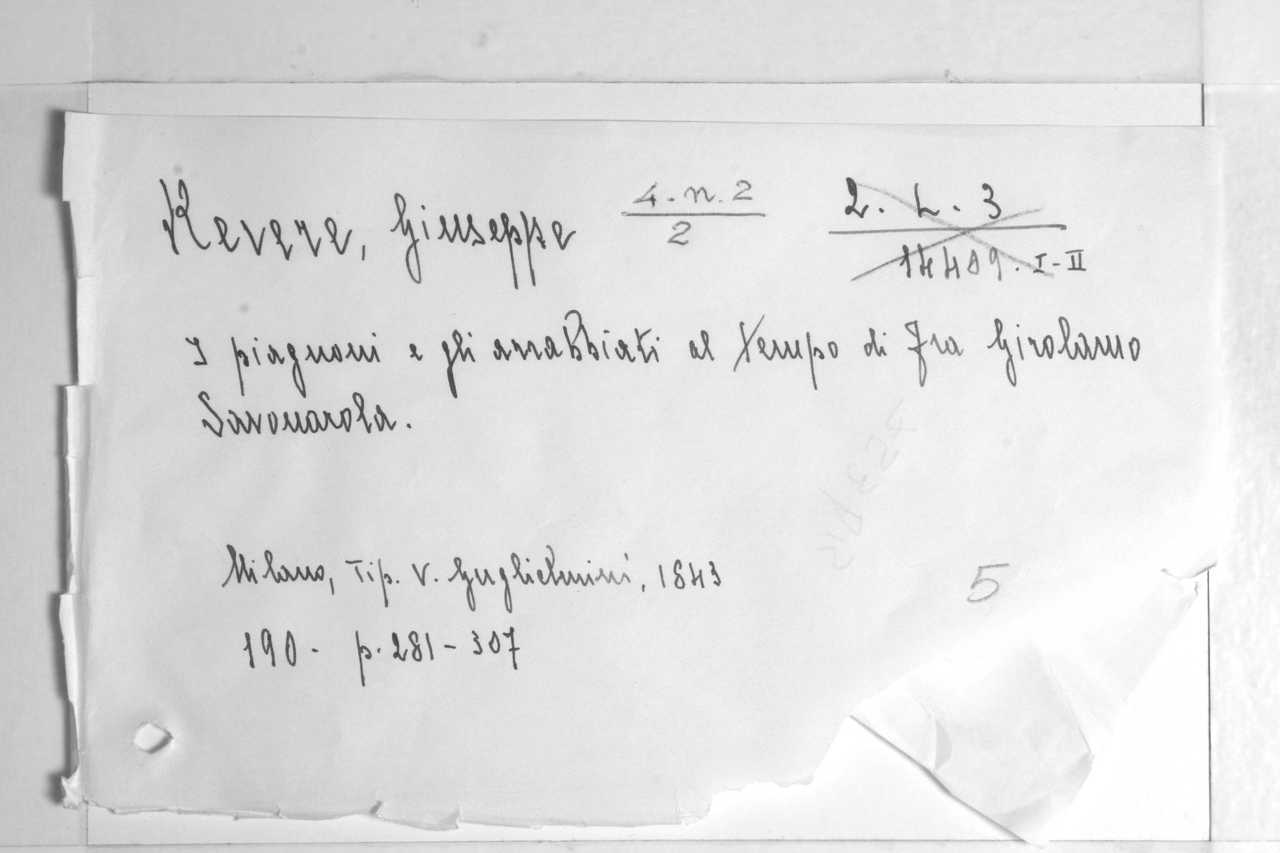 Revere, Giuseppe 4. n. 2 / 2 2. L. 3 / 14409. I-II
I piagnoni e gli arrabbiati al tempo di Fra Girolamo
Savonarola.
Milano, Tip. V. Guglielmini, 1843
5
190. p. 281-307